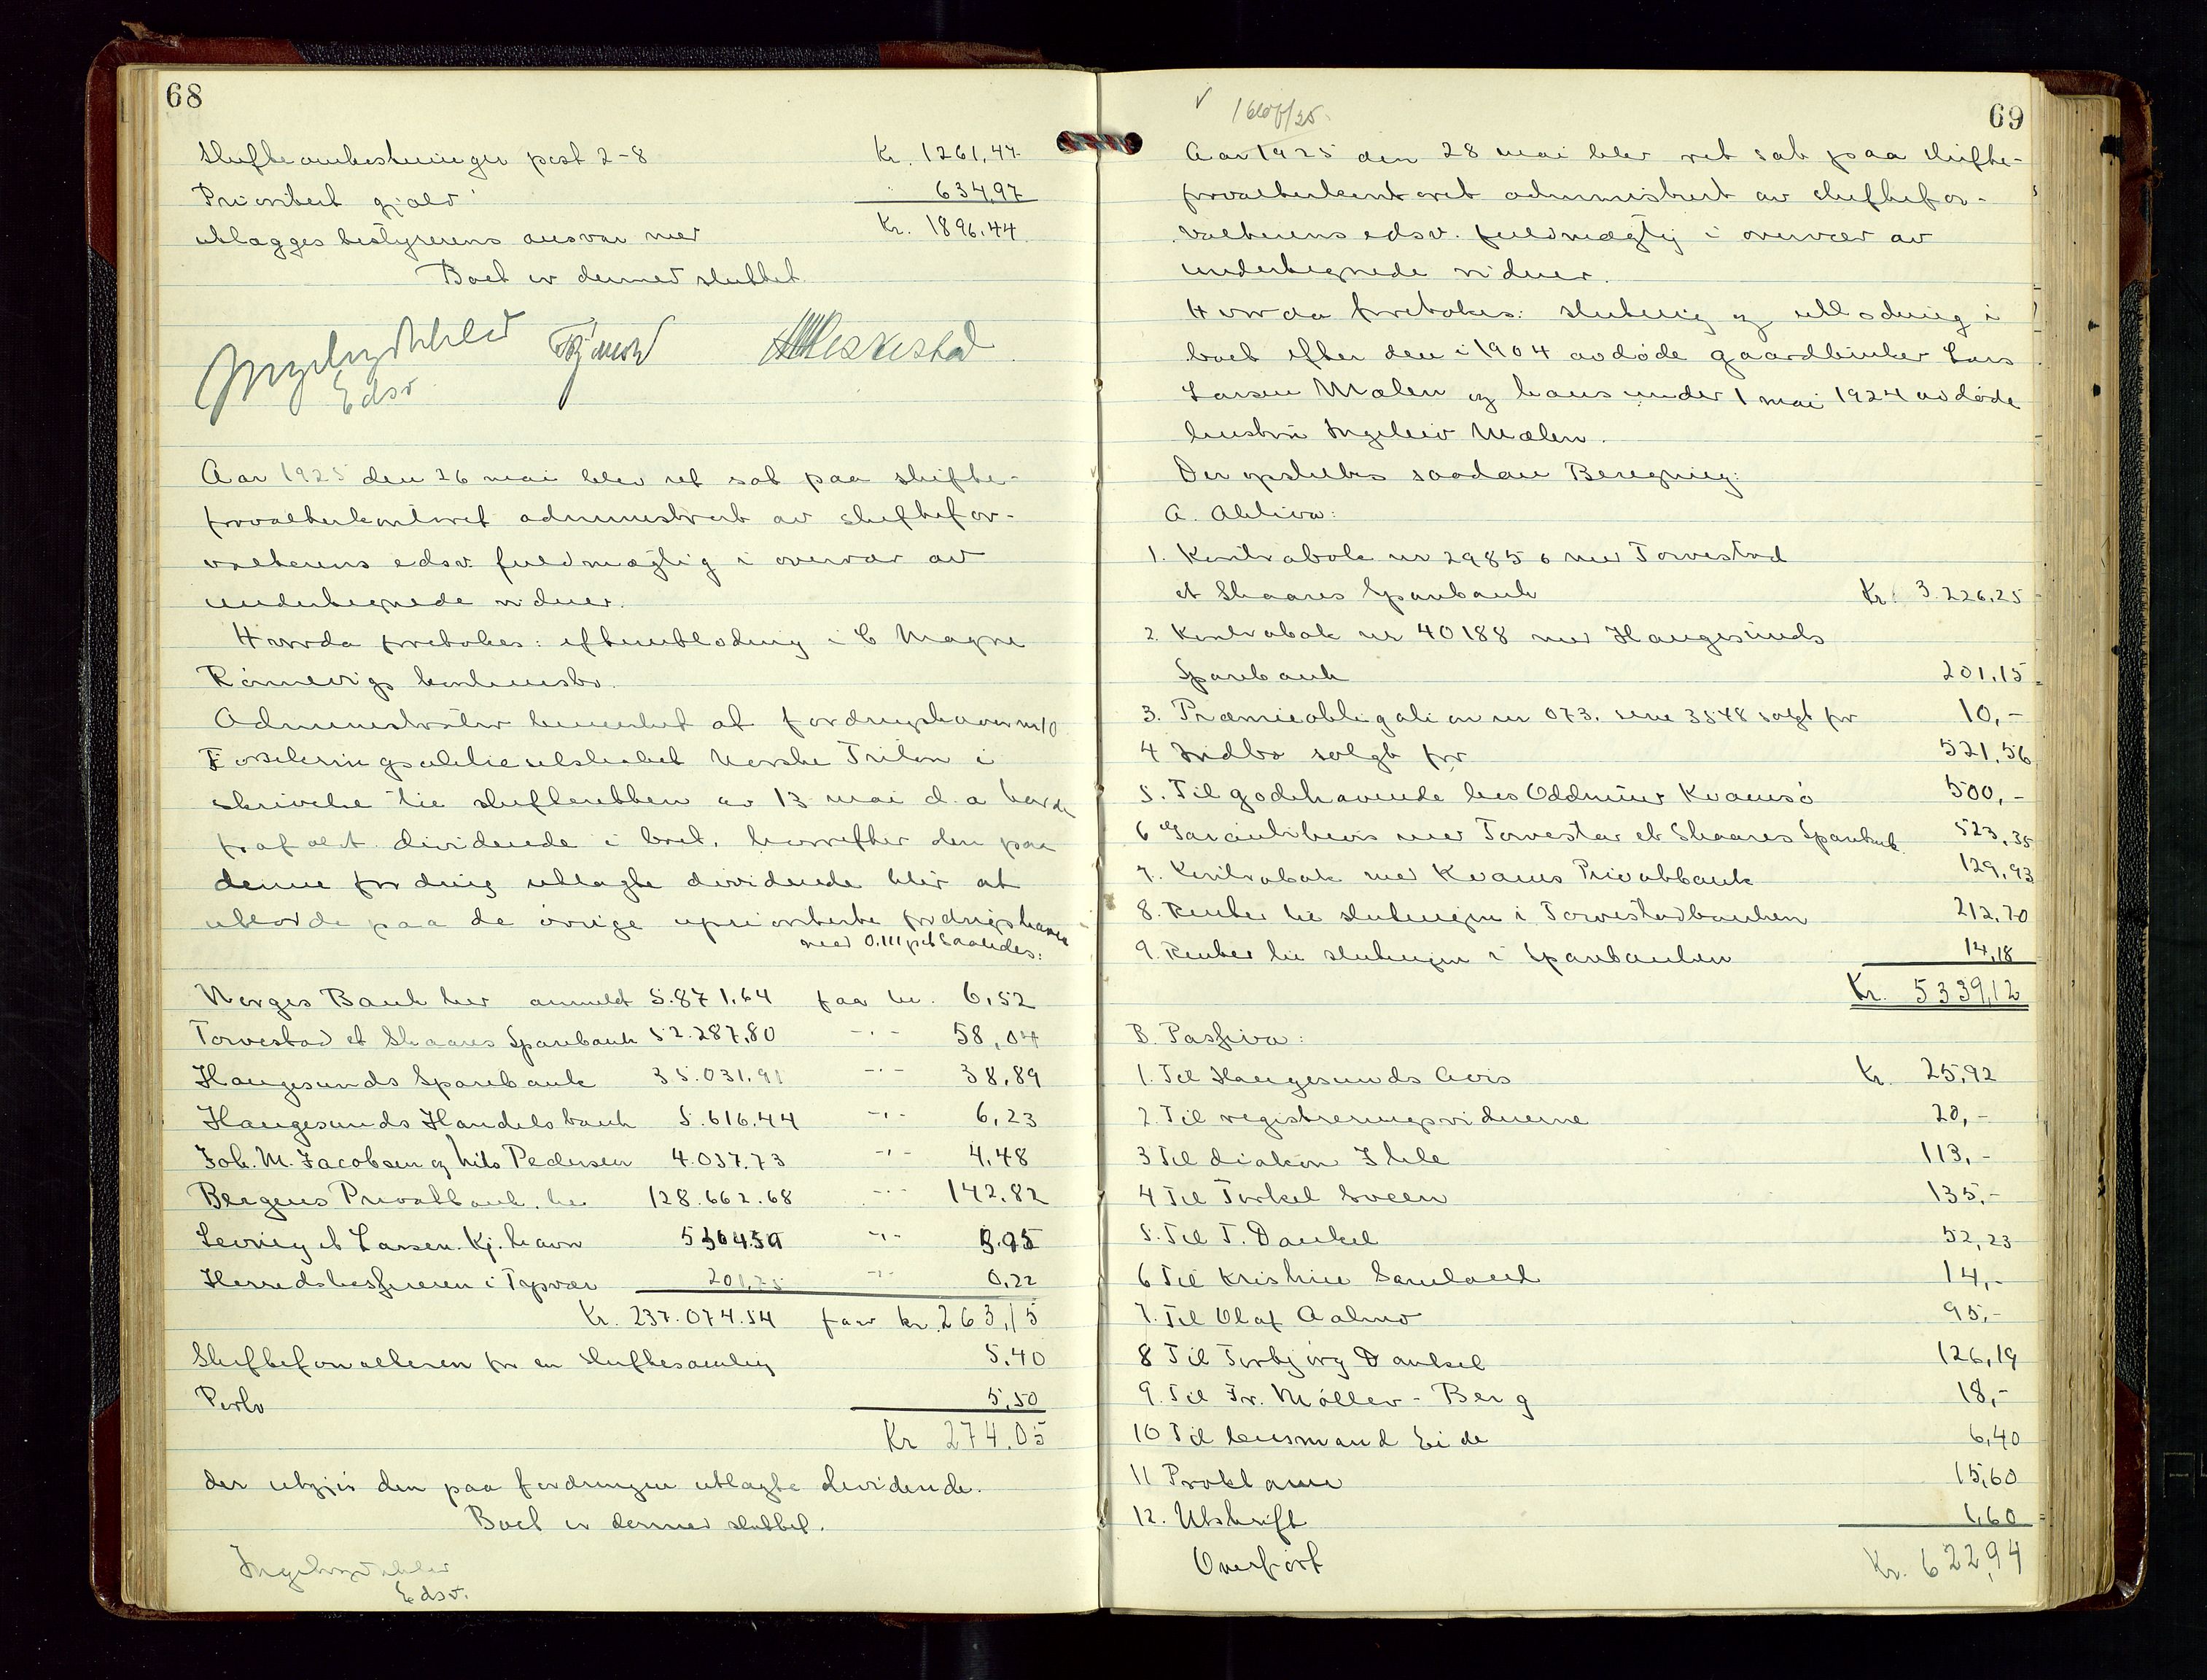 68
Skifteomkostninger post 2-8 Kr. 1261,47
Prioritert gjæld 634,97
utlægges bestyrerens ansvar med Kr. 1896,44
Boet er dermed sluttet.
Edsv
Aar 1925 den 26 mai blev ret sat paa skifte-
forvalterkontoret administrert av skiftefor-
valterens edsv. fuldmægtig i overvær av
undertegnede vidner.
Hvorda foretokes: efterutlodning i C Magne
Rönnevigs konkursbo.
Administrator bemerket at fordringshaver nr 10
Forsikringsaktieselskabet Norske Triton i
skrivelse til skifteretten av 13 mai d.a havde
frafalt dividende i boet, hvorefter den paa
denne fordring utlagte dividende blir at
utlodde paa de övrige uprioriterte fordringshavere
med 0,111 pct saaledes:
Norges Bank her anmeldt 5.871,64 faar kr. 6,52
Torvestad et Skaares Sparebank 52.287,80 -"- 58,04
Haugesunds Sparebank 35.031,91 -"- 38,89
Haugesunds Handelsbank 5.616.44 -"- 6,23
Joh. M. Jacobsen og Nils Pedersen 4.037.73 -"- 4,48
Bergens Privatbank, her 128.662.68 -"- 142,82
Levring et Larsen. Kj. havn 5364.59 -"- 5.95
Herredskassereren i Tysvær 201,75 -"- 0,22
Kr. 237.074.54 faar kr. 263,15
Skifteforvalteren for en skiftesamling 5,40
Porto 5,50
Kr 274,05
der utgjör den paa fordringen utlagte dividende.
Boet er dermed sluttet.
Edsv.
69
Aar 1925 den 28 mai blev ret sat paa skifte-
forvalterkontoret administrert av skiftefor-
valterens edsv. fuldmægtig i overvær av
undertegnede vidner.
Hvorda foretokes: slutning og utlodning i
boet efter den i 1904 avdöde gaardbruker Lars
Larsen Mælen og hans under 1 mai 1924 avdöde
hustru Ingeleiv Mælen.
Der opsluttes saadan Beregning:
A. Aktiva:
1. Kontrabok nr 29856 med Torvestad
et Skaares Sparebank Kr. 3.226,25
2. Kontrabok nr 40188 med Haugesunds
Sparebank 201,15
3. Præmieobligation nr 073. serie 3548 solgt for 10,-
4 Indbo solgt for 521,56
5. Tilgodehavende hos Oddmund Kvamsö 500,-
6 Garantibevis med Torvestad et Skaares Sparebank 523,35
7. Kontrabok med Kvams Privatbank 129,93
8. Renter til slutningen i Torvestadbanken 212,70
9. Renter til slutningen i Sparebanken 14,18
Kr. 5339,12
B. Passiva:
1. Til Haugesunds Avis Kr. 25,92
2. Til registreringsvidnerne 20,-
3 Til diakon Ihle 113,-
4 Til Torkel Sveen 135,-
5. Til T. Dankel 52,23
6 Til Kristine Samland 14,-
7. Til Olaf Aalmo 95,-
8 Til Torbjörg Dankel 126,19
9. Til Fr. Möller-Berg 18,-
10 Til lensmand Eide 6,40
11 Proklama 15,60
12. Utskrift 1,60
Overfört Kr. 622,94